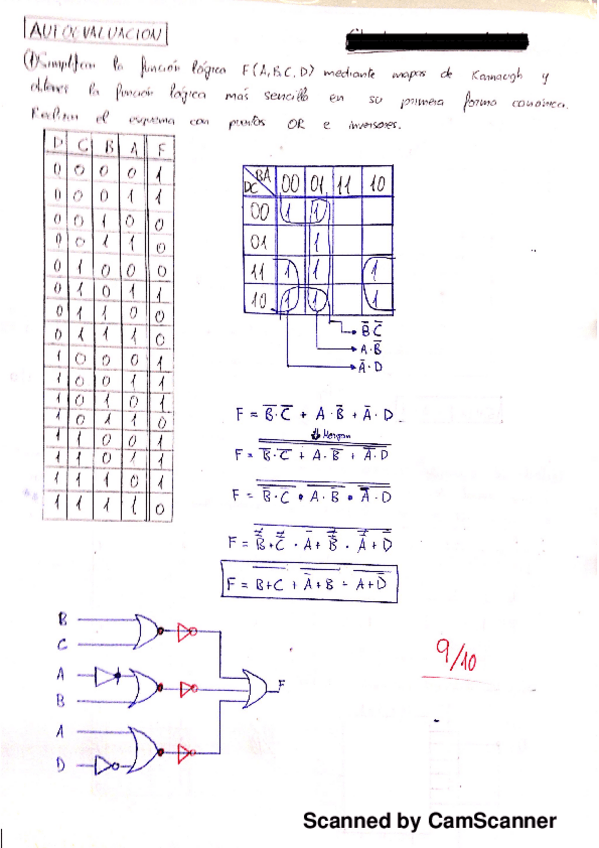 AUTOEVALUACION
① Simplificar la función lógica F(A,B,C,D) mediante mapas de Karnaugh y
obtener la función lógica más sencilla en su primera forma canónica.
Realizar el esquema con puertas OR e inversores.
D C B A F
0 0 0 0 1
0 0 0 1 1
0 0 1 0 0
0 0 1 1 0
0 1 0 0 0
0 1 0 1 1
0 1 1 0 0
0 1 1 1 0
1 0 0 0 1
1 0 0 1 1
1 0 1 0 1
1 0 1 1 0
1 1 0 0 1
1 1 0 1 1
1 1 1 0 1
1 1 1 1 0
BA
DC 00 01 11 10
00 1 1
01 1
11 1 1 1
10 1 1 1
B̅ C̅
A·B̅
A̅·D
F = B̅·C̅ + A·B̅ + A̅·D
Morgan
F = B̅·C̅ + A·B̅ + A̅·D
F = B̅·C̅ · A·B̅ · A̅·D
F = B̿+C̿ · A̅+B̿ · A̿+D̅
F = B+C + A̅+B + A+D̅
B
C
A
B
A
D
F
9/10
Scanned by CamScanner